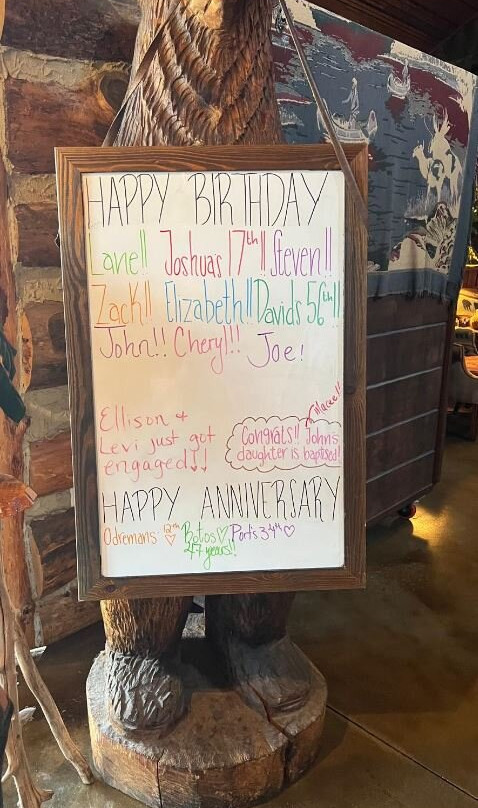 HAPPY BIRTHDAY
Lane!! Joshuas 17th!! Steven!!
Zack!! Elizabeth!! Davids 56th!!
John!! Cheryl!!! Joe!
Ellison +
Levi just got
engaged!!
Macee!!
Congrats!! John's
daughter is baptised!
HAPPY ANNIVERSARY
Odremans 12th Botos Port's 34th
47 years!!